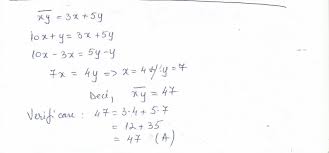 xy = 3x + 5y
10x + y = 3x + 5y
10x - 3x = 5y - y
7x = 4y => x = 4 și y = 7
Deci, xy = 47
Verificare: 47 = 3·4 + 5·7
= 12 + 35
= 47 (A)